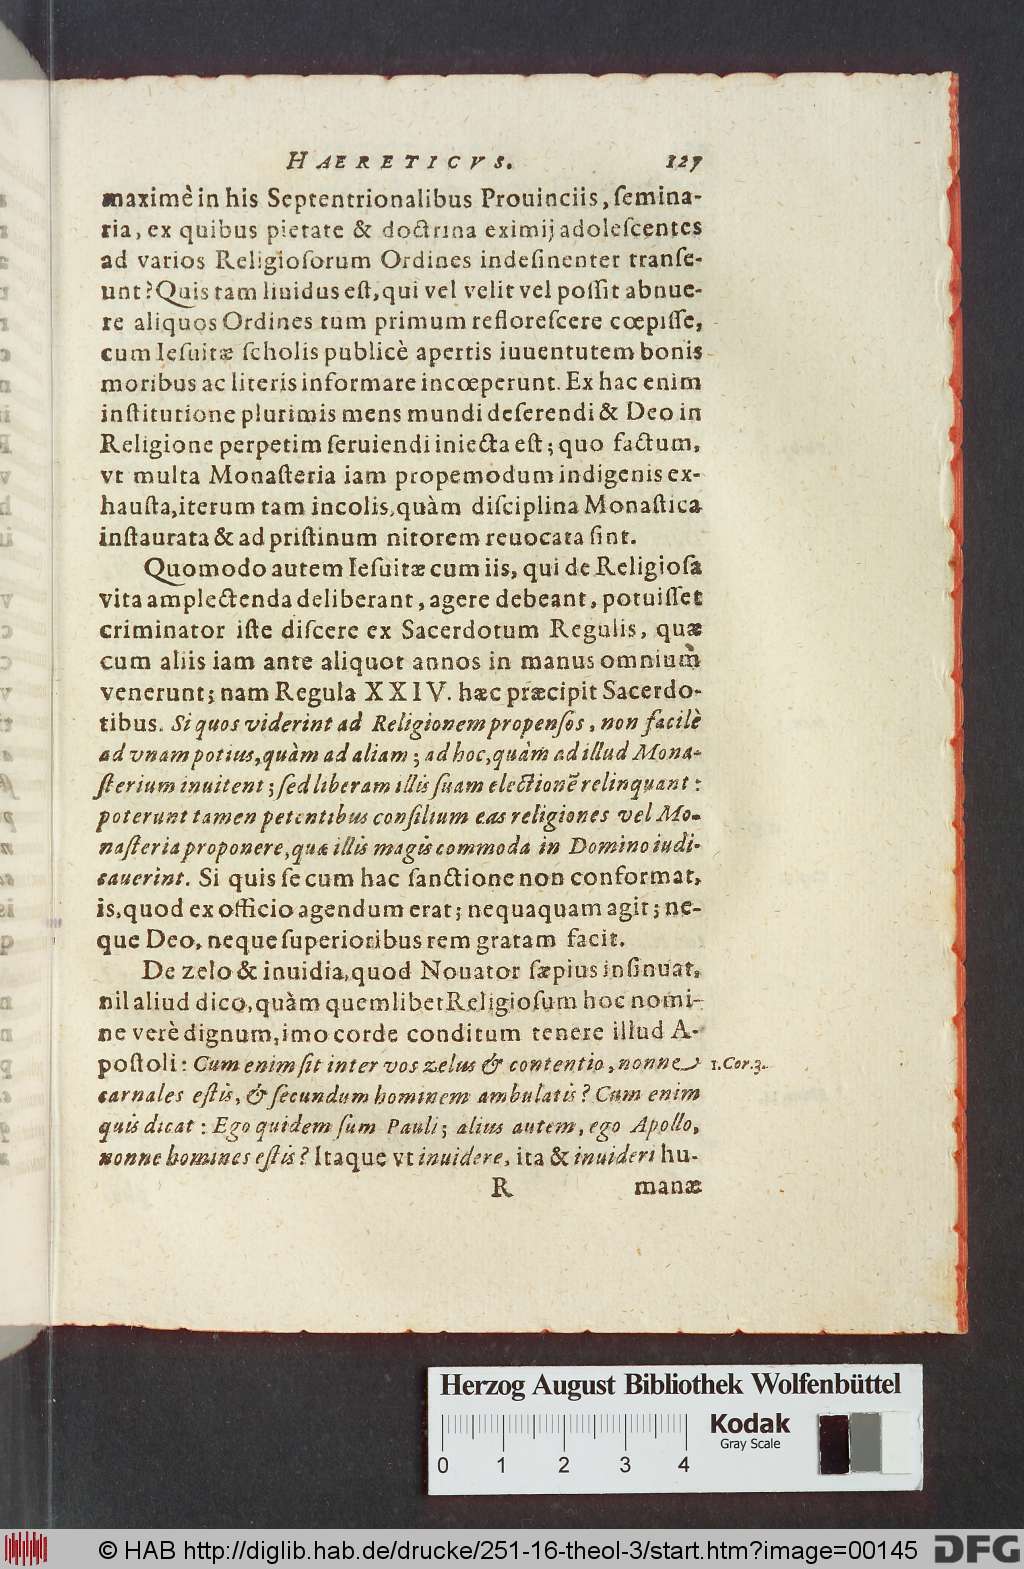 HAERETICVS. 127
maximè in his Septentrionalibus Prouinciis, ſemina-
ria, ex quibus pietate & doctrina eximij adoleſcentes
ad varios Religioſorum Ordines indeſinenter tranſe-
unt? Quis tam liuidus eſt, qui vel velit vel poſſit abnue-
re aliquos Ordines tum primum refloreſcere cœpiſſe,
cum Ieſuitæ ſcholis publicè apertis iuuentutem bonis
moribus ac literis informare incœperunt. Ex hac enim
inſtitutione plurimis mens mundi deſerendi & Deo in
Religione perpetim ſeruiendi iniecta eſt; quo factum,
vt multa Monaſteria iam propemodum indigenis ex-
hauſta, iterum tam incolis, quàm diſciplina Monaſtica
inſtaurata & ad priſtinum nitorem reuocata ſint.
Quomodo autem Ieſuitæ cum iis, qui de Religioſa
vita amplectenda deliberant, agere debeant, potuiſſet
criminator iſte diſcere ex Sacerdotum Regulis, quæ
cum aliis iam ante aliquot annos in manus omnium
venerunt; nam Regula XXIV. hæc præcipit Sacerdo-
tibus. Si quos viderint ad Religionem propenſos, non facilè
ad vnam potius, quàm ad aliam; ad hoc, quàm ad illud Mona-
ſterium inuitent; ſed liberam illis ſuam electionē relinquant:
poterunt tamen petentibus conſilium eas religiones vel Mo-
naſteria proponere, quæ illis magis commoda in Domino iudi-
cauerint. Si quis ſe cum hac ſanctione non conformat,
is, quod ex officio agendum erat; nequaquam agit; ne-
que Deo, neque ſuperioribus rem gratam facit.
De zelo & inuidia, quod Nouator ſæpius inſinuat,
nil aliud dico, quàm quemlibet Religioſum hoc nomi-
ne verè dignum, imo corde conditum tenere illud A-
poſtoli: Cum enim ſit inter vos zelus & contentio, nonne 1. Cor. 3.
carnales eſtis, & ſecundum hominem ambulatis? Cum enim
quis dicat: Ego quidem ſum Pauli; alius autem, ego Apollo,
nonne homines eſtis? Itaque vt inuidere, ita & inuideri hu-
R manæ
Herzog August Bibliothek Wolfenbüttel
Kodak
Gray Scale
0 1 2 3 4
© HAB http://diglib.hab.de/drucke/251-16-theol-3/start.htm?image=00145 DFG